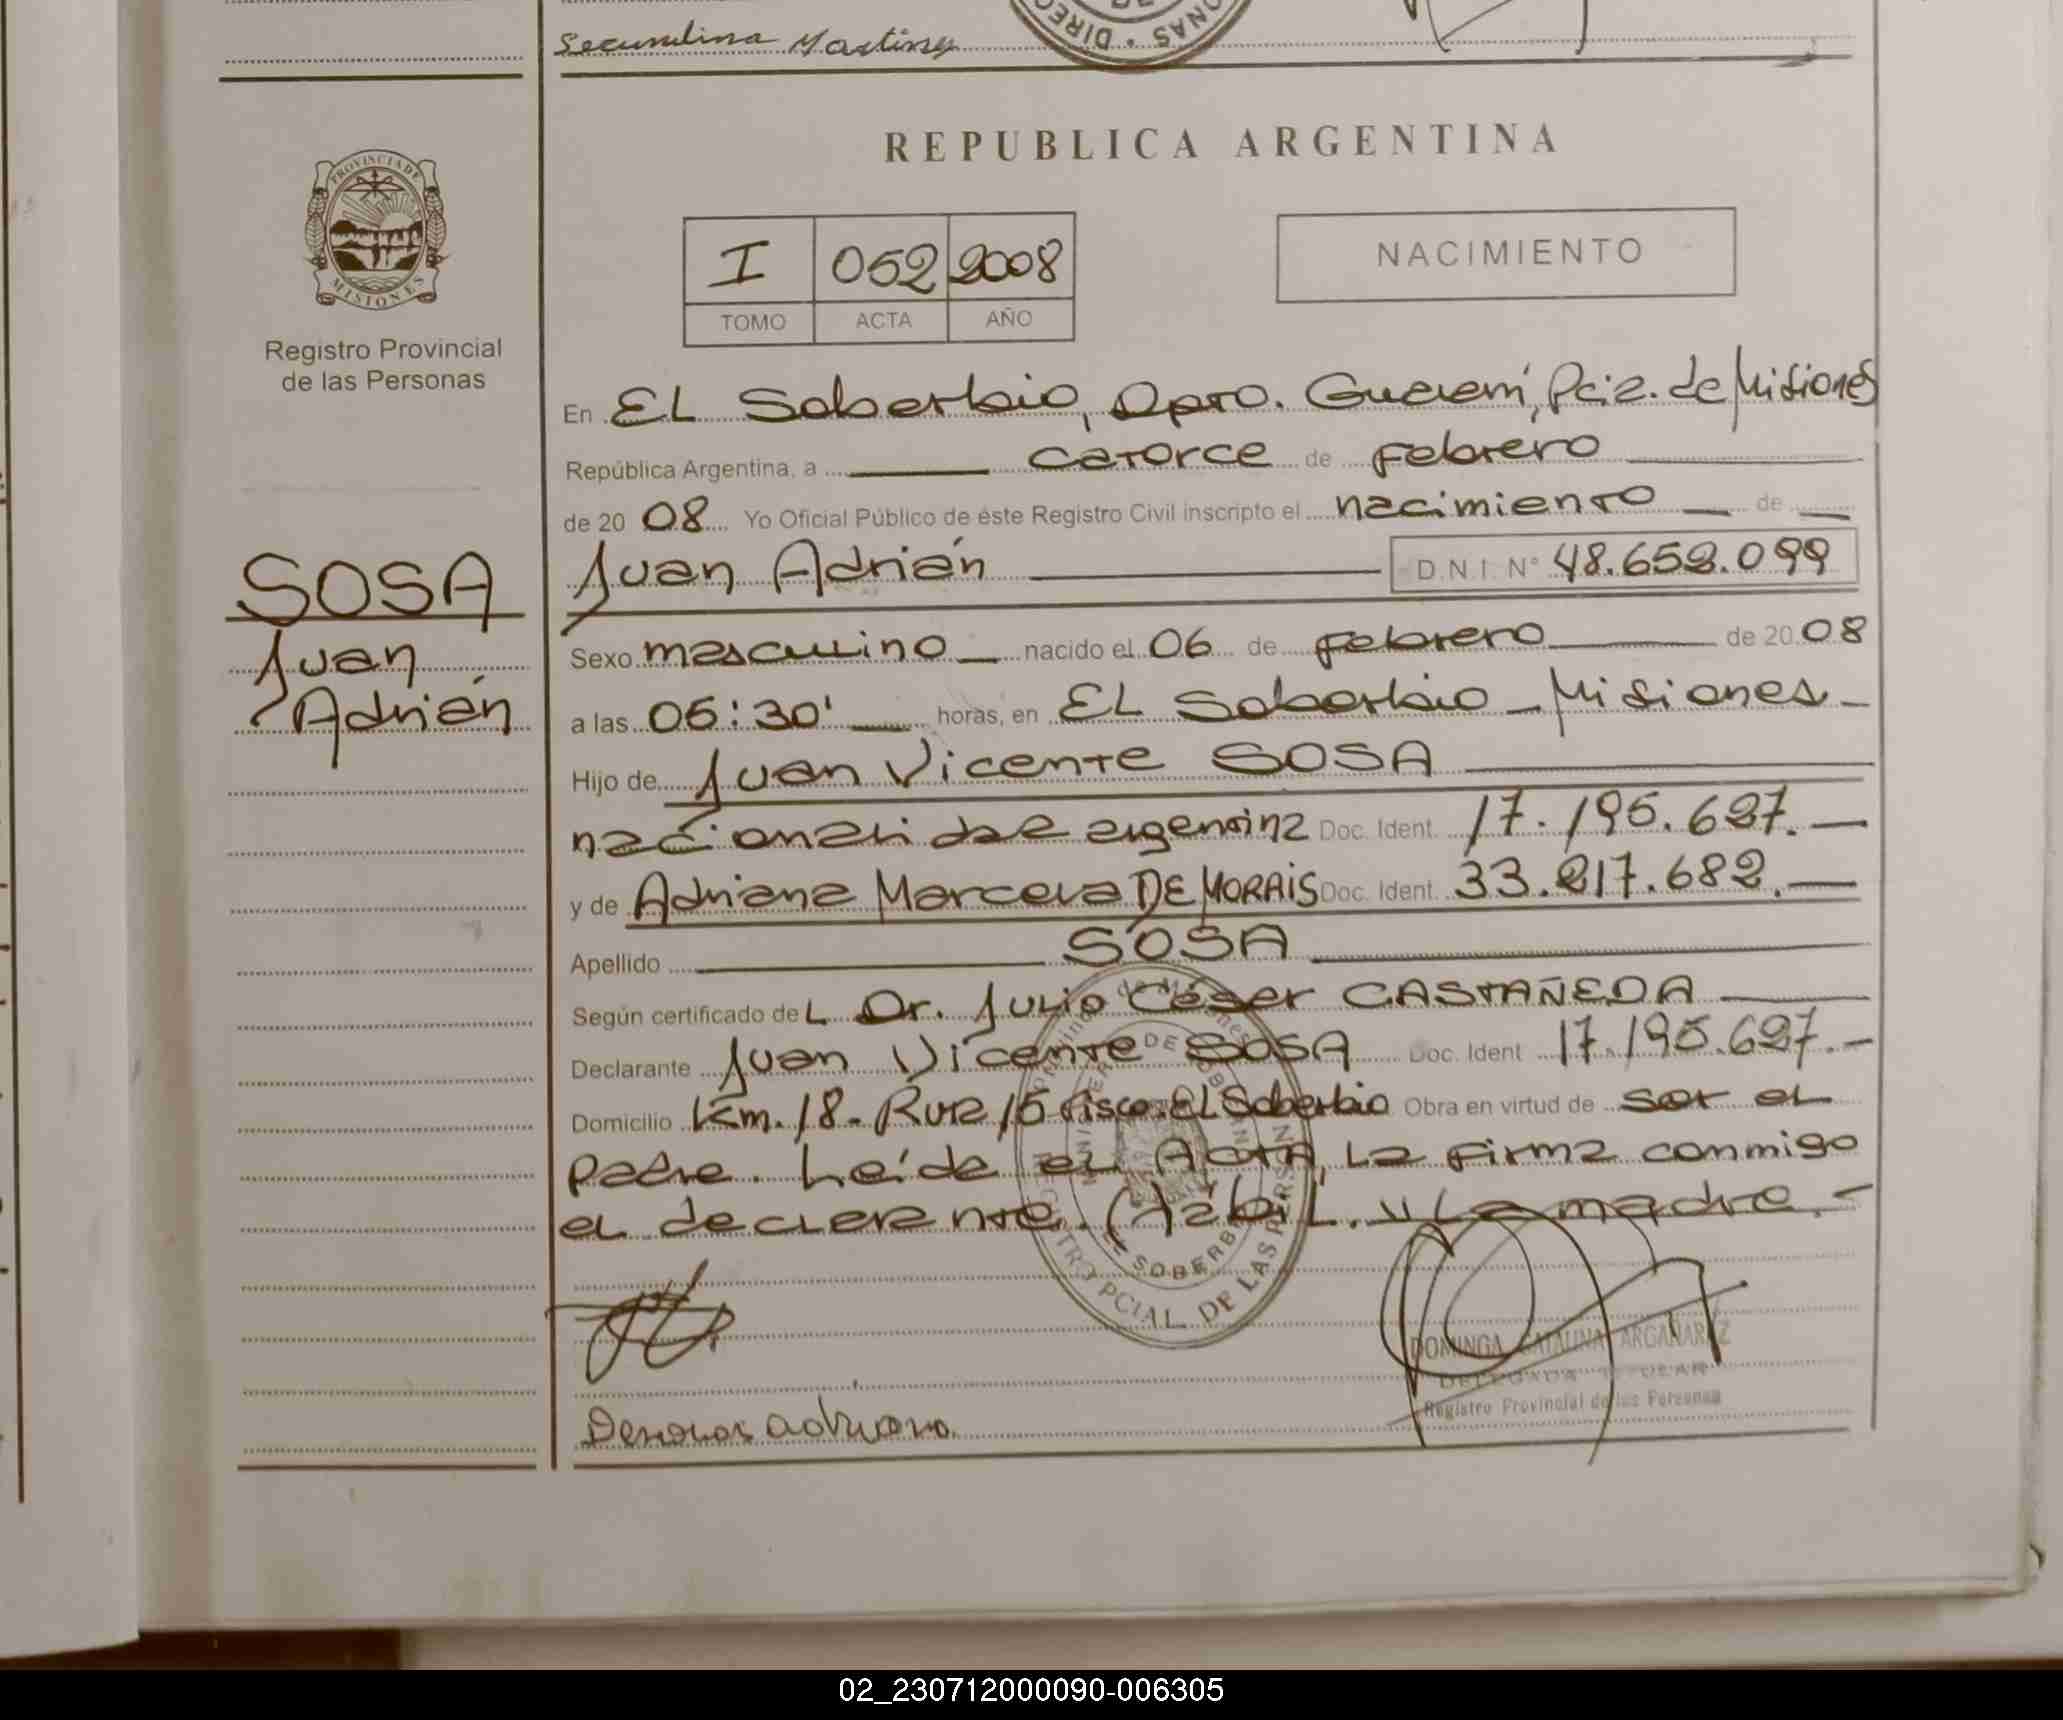 Secundina Martinez
DIREC
ONAS
REPUBLICA ARGENTINA
PROVINCIA DE
MISIONES
Registro Provincial
de las Personas
I 052 2008
TOMO ACTA AÑO
NACIMIENTO
En EL Soberbio, Dpto. Guaraní, Pcia. de Misiones
República Argentina, a catorce de febrero
de 2008 Yo Oficial Público de éste Registro Civil inscripto el nacimiento de
Juan Adrián D.N.I. N° 48.652.099
SOSA
Juan
Adrián
Sexo masculino nacido el 06 de febrero de 2008
a las 05:30' horas, en EL Soberbio - Misiones -
Hijo de Juan Vicente SOSA
nacionalidad argentina Doc. Ident. 17.195.627.-
y de Adriana Marcela DE MORAIS Doc. Ident. 33.217.682.-
Apellido SOSA
Según certificado del Dr. Julio César CASTAÑEDA
Declarante Juan Vicente SOSA Doc. Ident 17.195.627.-
Domicilio Km. 18- Ruta 15 fisco. EL Soberbio Obra en virtud de ser el
padre. Leída el Acta, la firma conmigo
el declarante. (Hábil. y la madre.-
REGISTRO PCIAL DE LAS PERSON
MINISTERIO DE GOBIERN
SOBERB
DOMINGA CATALINA ARGAÑARAZ
DELEGADA TITULAR
Registro Provincial de las Personas
02_230712000090-006305